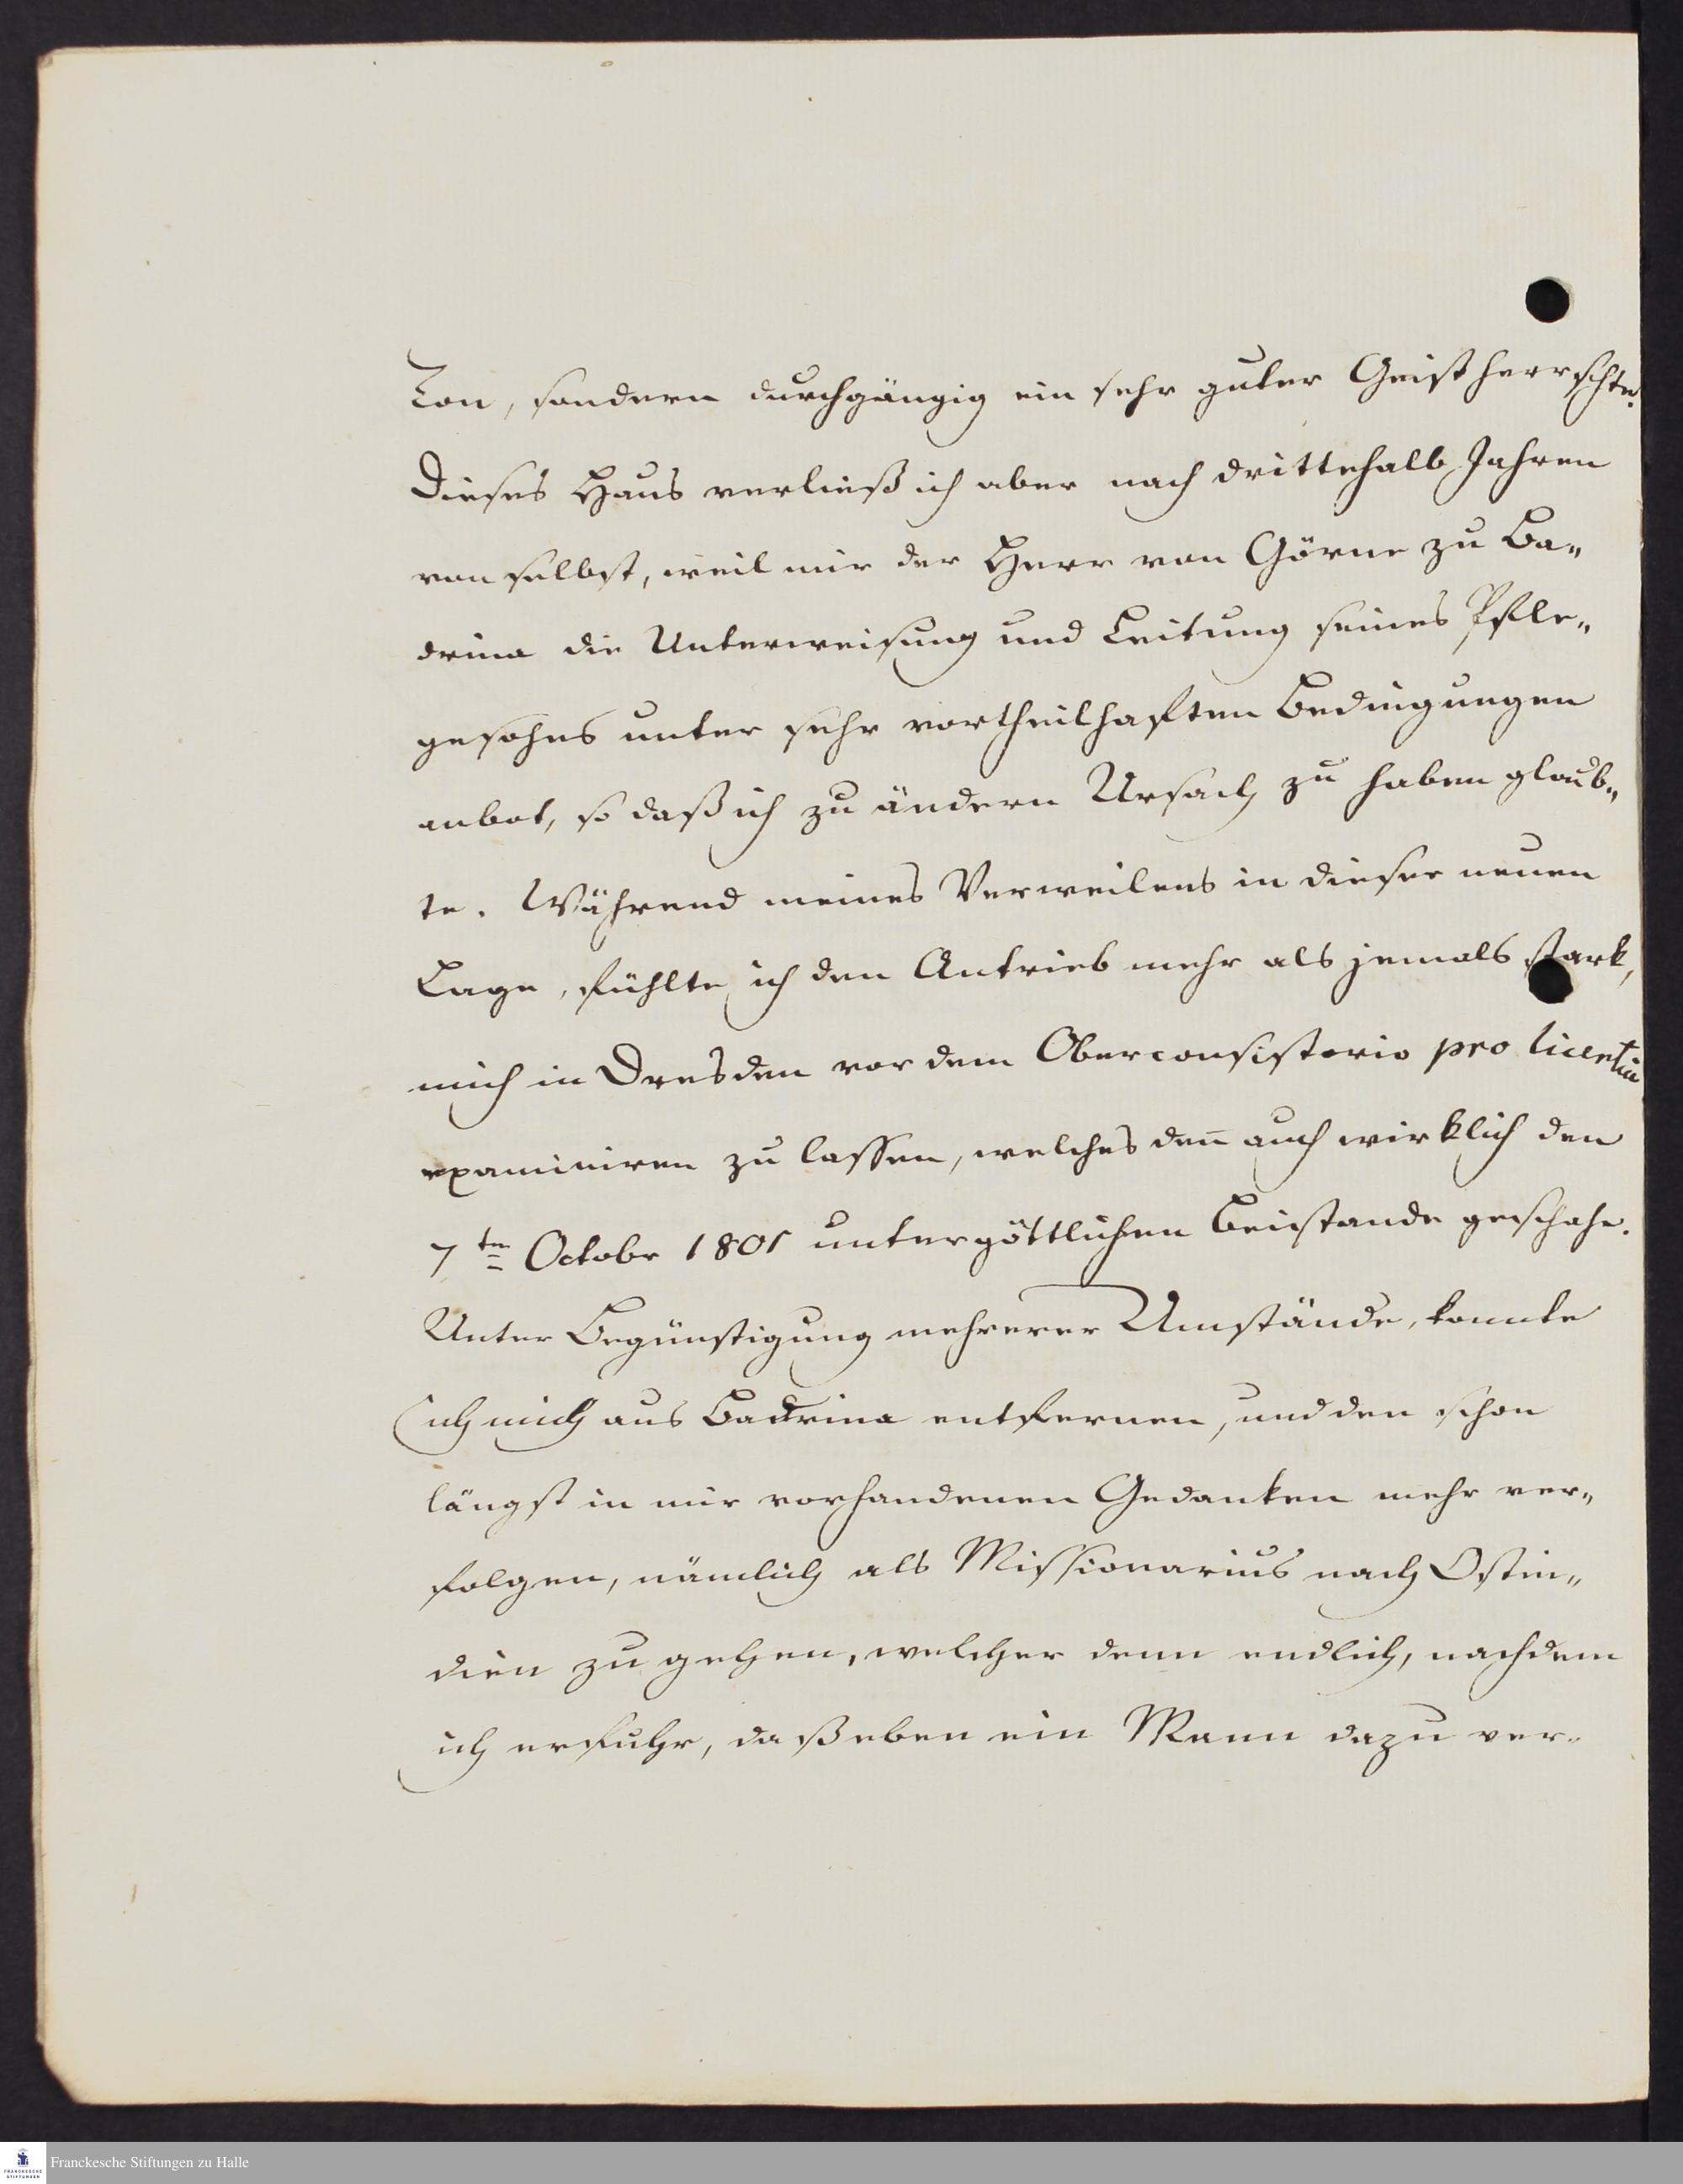 Ton, sondern durchgängig ein sehr guter Geist herrschte.
Dieses Haus verließ ich aber nach drittehalb Jahren
von selbst, weil mir der Herr von Görne zu Ba„
drina die Unterweisung und Leitung seines Pfle„
gesohns unter sehr vortheilhaften Bedingungen
anbot, so daß ich zu ändern Ursach zu haben glaub„
te. Während meines Verweilens in dieser neuen
Lage, fühlte ich den Antrieb mehr als jemals stark,
mich in Dresden vor dem Oberconsistorio pro licentia
examiniren zu lassen, welches den̄ auch wirklich den
7ten Octobr 1801 unter göttlichen Beistande geschahe.
Unter Begünstigung mehrerer Umstände, konnte
ich mich aus Badrina entfernen, und den schon
längst in mir vorhandenen Gedanken mehr ver„
folgen, nämlich als Missionarius nach Ostin„
dien zu gehen, welcher denn endlich, nachdem
ich erfuhr, daß eben ein Mann dazu ver-
FRANCKESCHE
STIFTUNGEN
Franckesche Stiftungen zu Halle